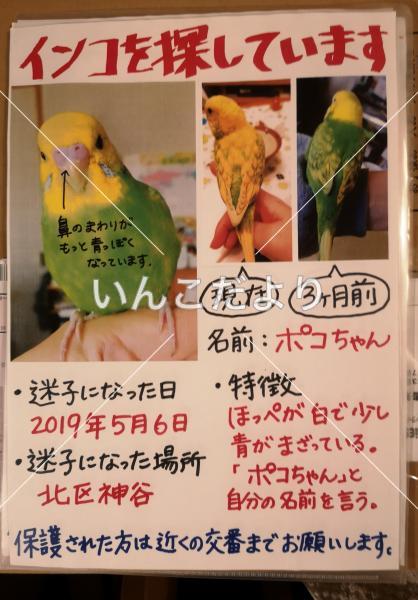 インコを探しています
鼻のまわりが
もっと青っぽく
なっています.
いんこだより
現在
3ヶ月前
名前:ポコちゃん
・迷子になった日
2019年5月6日
・迷子になった場所
北区神谷
・特徴
ほっぺが白で少し
青がまざっている。
「ポコちゃん」と
自分の名前を言う。
保護された方は近くの交番までお願いします。